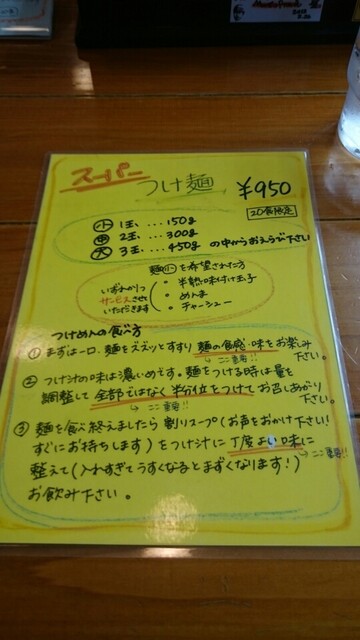 スーパー
つけ麺 ¥950
20食限定
小 1玉、… 150g
中 2玉、… 300g
大 3玉、… 450g の中からおえらび下さい
麺小を希望された方
いずれか1つ
サービスさせて
いただきます
・半熟味付け玉子
・めんま
・チャーシュー
つけめんの食べ方
① まずは一口、麺をズズッとすすり 麺の食感、味をお楽しみ下さい。
↳ ここ重要!!
② つけ汁の味は濃いめです。麺をつける時は量を
調整して 全部ではなく半分位をつけて お召しあがり下さい。
↳ ここ重要!!
③ 麺を食べ終えましたら 割りスープ(お声をおかけ下さい!
すぐにお持ちします)をつけ汁に 丁度よい味に
↳ ここ重要!!
整えて(入れすぎてうすくなるとまずくなります!)
お飲み下さい。